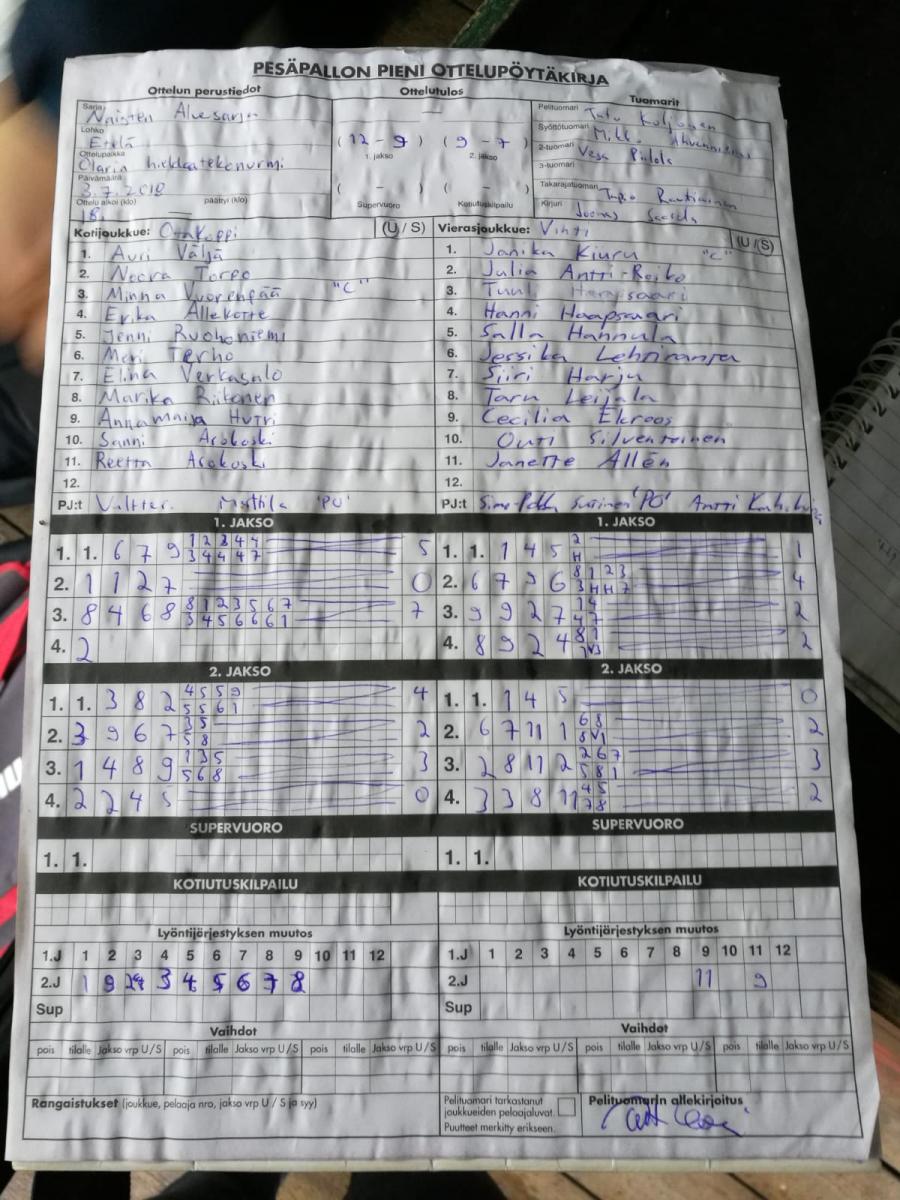 PESÄPALLON PIENI OTTELUPÖYTÄKIRJA
Ottelun perustiedot Ottelutulos Tuomarit
Sarja Naisten Aluesarja
Lohko Etelä
Ottelupaikka Olarin hiekkatekonurmi
Päivämäärä 3.7.2018
Ottelu alkoi (klo) 18. päättyi (klo)
(12 - 9) (9 - 7)
1. jakso 2. jakso
( - ) ( - )
Supervuoro Kotiutuskilpailu
Pelituomari
Syöttötuomari Mikko
2-tuomari Vesa
3-tuomari
Takarajatuomari
Kirjuri Joonas
Kotijoukkue: (U / S) Vierasjoukkue: Vihti (U / S)
1. Auri Väljä 1. Janika Kiuru "C"
2. Noora Torpo 2. Julia Antti-Roiko
3. Minna Vuorenpää "C" 3. Tuuli
4. Erika Allekotte 4. Hanni Haapsaari
5. Jenni Ruohoniemi 5. Salla Hannula
6. Meri Terho 6. Jessika Lehtiranta
7. Elina Verkasalo 7. Siiri Harju
8. Marika Riikonen 8. Taru Leijala
9. Annamaija Hutri 9. Cecilia Ekroos
10. Sanni Arokoski 10. Outi Silventoinen
11. Reetta Arokoski 11. Janette Allén
12. 12.
PJ:t Valtter. Mattila 'PO' PJ:t 'PO' Antti
1. JAKSO 1. JAKSO
1. 1. 6 7 9 1 2 3 4 4 5 1. 1. 1 4 5 2 1
3 4 4 4 7 H
2. 1 1 2 7 0 2. 6 7 9 6 8 1 2 3 4
3 H H 7
3. 8 4 6 8 8 1 2 3 5 6 7 7 3. 9 9 2 7 1 4 2
3 4 5 6 6 6 1 4 7
4. 2 4. 8 9 2 4 8 1 2
2. JAKSO 2. JAKSO
1. 1. 3 8 2 4 5 5 9 4 1. 1. 1 4 5 0
5 5 6 1
2. 3 9 6 7 3 5 2 2. 6 7 11 1 6 8 2
5 8 8 V1
3. 1 4 8 9 1 3 5 3 3. 2 8 11 2 2 6 7 3
5 6 8 5 8 1
4. 2 2 4 5 0 4. 3 3 8 11 4 5 2
7 8
SUPERVUORO SUPERVUORO
1. 1. 1. 1.
KOTIUTUSKILPAILU KOTIUTUSKILPAILU
Lyöntijärjestyksen muutos Lyöntijärjestyksen muutos
1.J 1 2 3 4 5 6 7 8 9 10 11 12 1.J 1 2 3 4 5 6 7 8 9 10 11 12
2.J 1 9 2 3 4 5 6 7 8 2.J 11 9
Sup Sup
Vaihdot Vaihdot
pois tilalle Jakso vrp U / S pois tilalle Jakso vrp U / S pois tilalle Jakso vrp U / S pois tilalle Jakso vrp U / S pois tilalle Jakso vrp U / S pois tilalle Jakso vrp U / S
Rangaistukset (joukkue, pelaaja nro, jakso vrp U / S ja syy)
Pelituomari tarkastanut
joukkueiden pelaajaluvat.
Puutteet merkitty erikseen.
Pelituomarin allekirjoitus